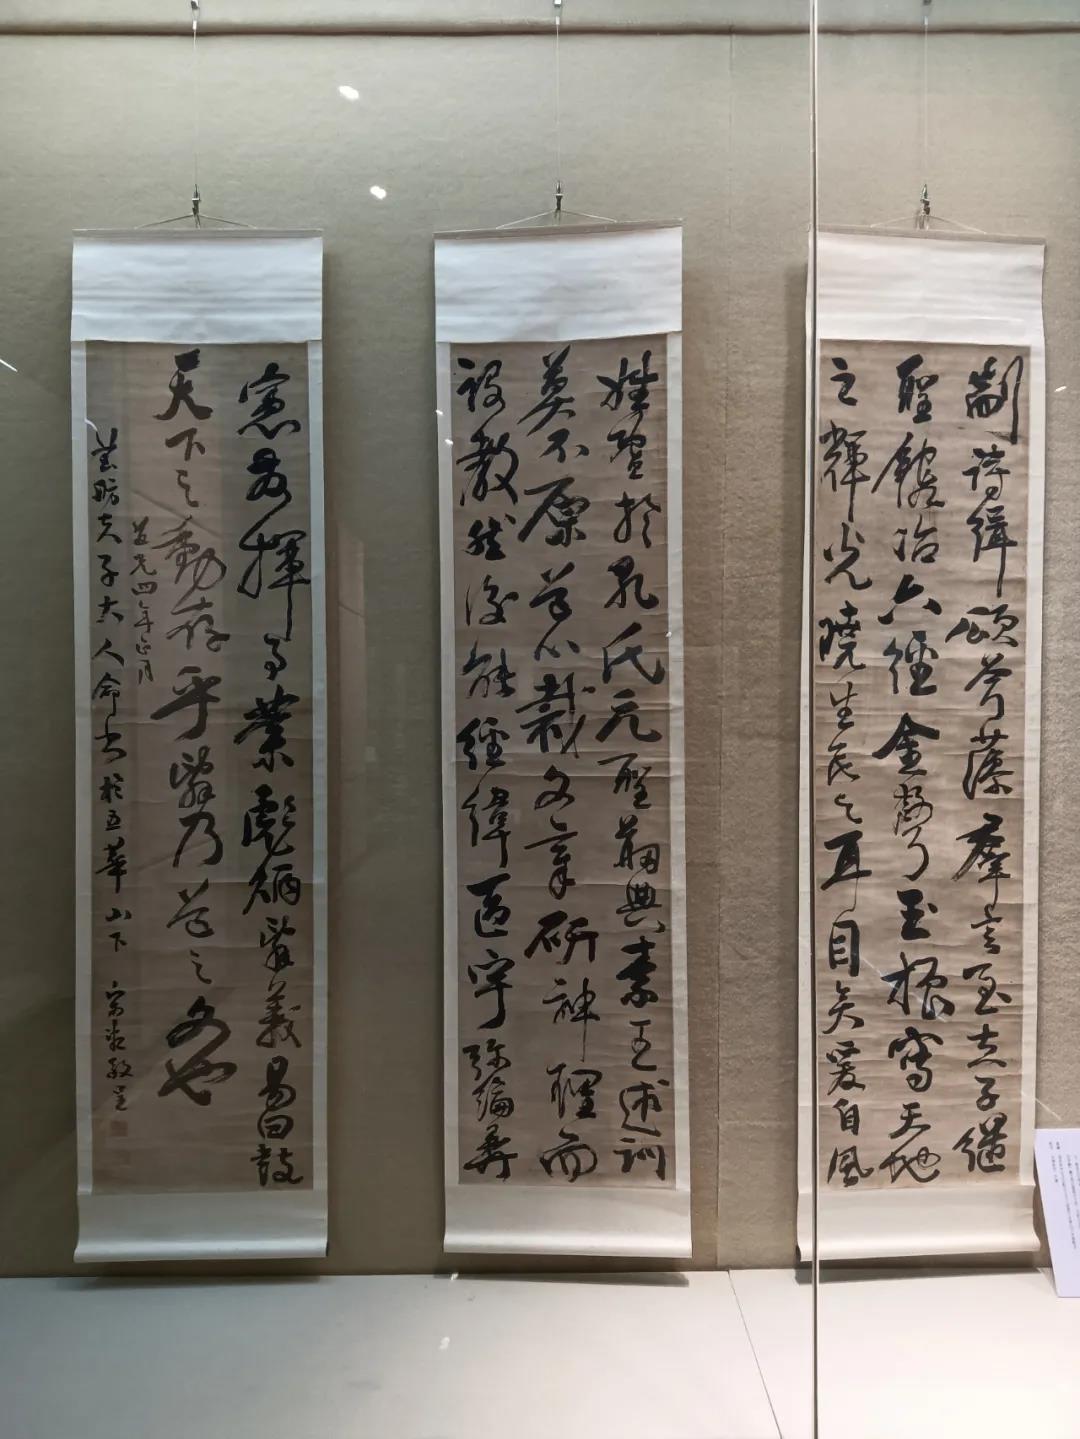 剬詩緝頌斧藻羣言至夫子繼
聖鎔冶六經金聲玉振寫天地
之輝光曉生民之耳目矣爰自風
姓暨於孔氏元聖剏典素王述訓
莫不原道心裁文章研神理而
設教然後能經緯區宇彌綸彝
憲發揮事業彪炳辭義易曰鼓
天下之動存乎辭乃道之文也
道光四年正月
舫夫子大人命書於五華山下 宋湘敬呈